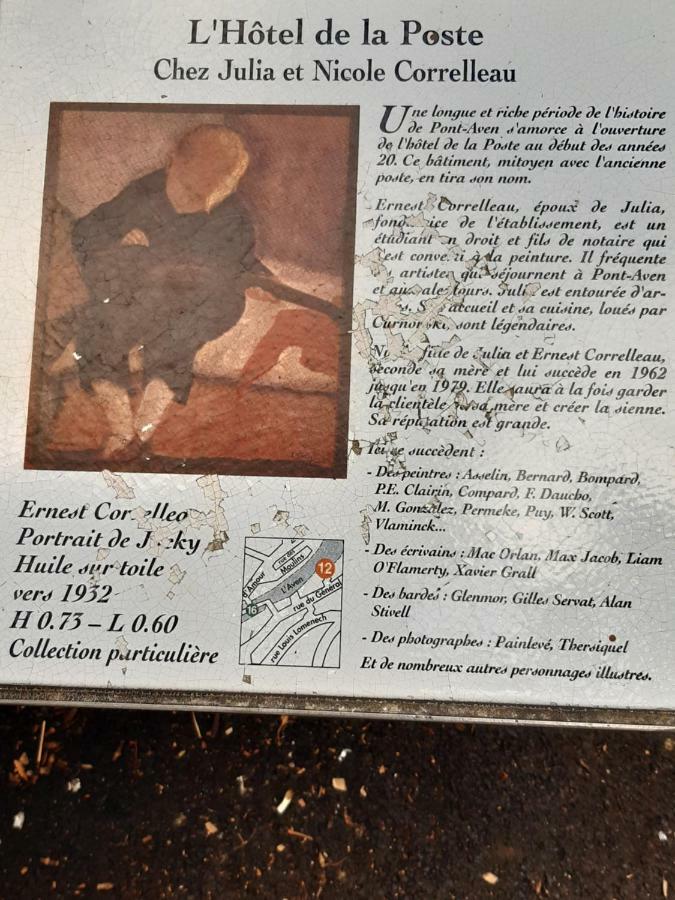 L'Hôtel de la Poste
Chez Julia et Nicole Correlleau
Une longue et riche période de l'histoire
de Pont-Aven s'amorce à l'ouverture
de l'hôtel de la Poste au début des années
20. Ce bâtiment, mitoyen avec l'ancienne
poste, en tira son nom.
Ernest Correlleau, époux de Julia,
de l'établissement, est un
étudiant en droit et fils de notaire qui
s'est à la peinture. Il fréquente
artistes qui séjournent à Pont-Aven
et alentours. Julia est entourée d'ar-
accueil et sa cuisine, loués par
Curnonski, sont légendaires.
fille de Julia et Ernest Correlleau,
seconde sa mère et lui succède en 1962
jusqu'en 1979. Elle saura à la fois garder
la clientèle sa mère et créer la sienne.
Sa réputation est grande.
Ici se succèdent :
- Des peintres : Asselin, Bernard, Bompard,
P.E. Clairin, Compard, F. Daucho,
M. Gonzalez, Permeke, Puy, W. Scott,
Vlaminck...
- Des écrivains : Mac Orlan, Max Jacob, Liam
O'Flamerty, Xavier Grall
- Des bardes : Glenmor, Gilles Servat, Alan
Stivell
- Des photographes : Painlevé, Thersiquel
Et de nombreux autres personnages illustres.
Ernest
Portrait de
Huile sur toile
vers 1932
H 0.73 – L 0.60
Collection particulière
rue des
Moulins
12
d'Amour
L'Aven
rue du Général
16
rue Louis Lomenech